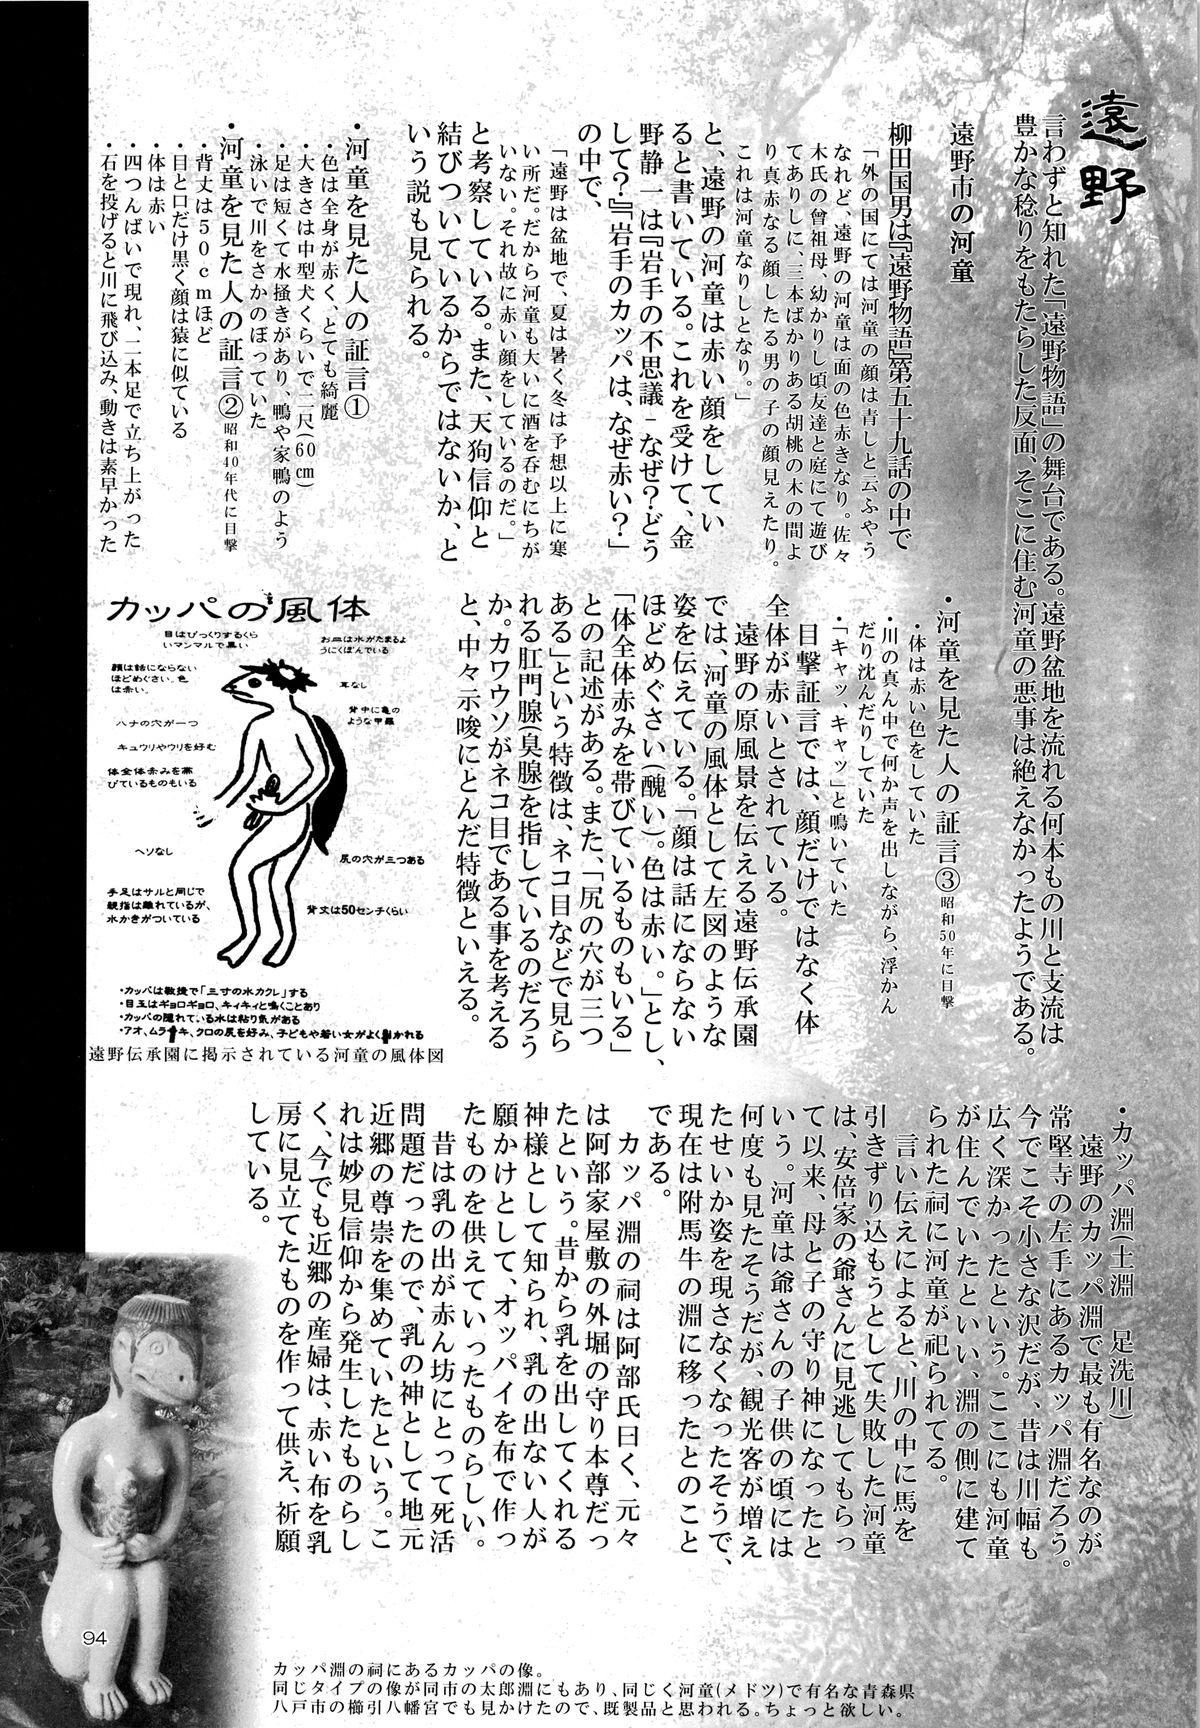 遠野
言わずと知れた「遠野物語」の舞台である。遠野盆地を流れる何本もの川と支流は
豊かな稔りをもたらした反面、そこに住む河童の悪事は絶えなかったようである。
遠野市の河童
柳田国男は『遠野物語』第五十九話の中で
「外の国にては河童の顔は青しと云ふやう
なれど、遠野の河童は面の色赤きなり。佐々
木氏の曾祖母、幼かりし頃友達と庭にて遊び
てありしに、三本ばかりある胡桃の木の間よ
り真赤なる顔したる男の子の顔見えたり。
これは河童なりしとなり。」
と、遠野の河童は赤い顔をしてい
ると書いている。これを受けて、金
野静一は『岩手の不思議-なぜ?どう
して?』『岩手のカッパは、なぜ赤い?」
の中で、
「遠野は盆地で、夏は暑く冬は予想以上に寒
い所だ。だから河童も大いに酒を呑むにちが
いない。それ故に赤い顔をしているのだ。」
と考察している。また、天狗信仰と
結びついているからではないか、と
いう説も見られる。
・河童を見た人の証言①
・色は全身が赤く、とても綺麗
・大きさは中型犬くらいで二尺(60㎝)
・足は短くて水掻きがあり、鴨や家鴨のよう
・泳いで川をさかのぼっていた
・河童を見た人の証言②昭和40年代に目撃
・背丈は50cmほど
・目と口だけ黒く顔は猿に似ている
・体は赤い
・四つんばいで現れ、二本足で立ち上がった
・石を投げると川に飛び込み、動きは素早かった
・河童を見た人の証言③昭和50年に目撃
・体は赤い色をしていた
・川の真ん中で何か声を出しながら、浮かん
だり沈んだりしていた
・「キャッ、キャッ」と鳴いていた
目撃証言では、顔だけではなく体
全体が赤いとされている。
遠野の原風景を伝える遠野伝承園
では、河童の風体として左図のような
姿を伝えている。「顔は話にならない
ほどめぐさい(醜い)。色は赤い。」とし、
「体全体赤みを帯びているものもいる」
との記述がある。また、「尻の穴が三つ
ある」という特徴は、ネコ目などで見ら
れる肛門腺(臭腺)を指しているのだろう
か。カワウソがネコ目である事を考える
と、中々示唆にとんだ特徴といえる。
カッパの風体
目はびっくりするくら
いマンマルで黒い
お皿は水がたまるよ
うにくぼんでいる
顔は話にならない
ほどめぐさい。色
は赤い。
耳なし
背中に亀の
ような甲羅
ハナの穴が一つ
キュウリやウリを好む
体全体赤みを帯
びているものもいる
ヘソなし
尻の穴が三つある
手足はサルと同じで
親指は離れているが、
水かきがついている
背丈は50センチくらい
・カッパは敏捷で「三寸の水カクレ」する
・目玉はギョロギョロ、キィキィと鳴くことあり
・カッパの隠れている水は粘り気がある
・アオ、ムラキ、クロの尻を好み、子どもや若い女がよくかれる
遠野伝承園に掲示されている河童の風体図
・カッパ淵(土淵　足洗川)
遠野のカッパ淵で最も有名なのが
常堅寺の左手にあるカッパ淵だろう。
今でこそ小さな沢だが、昔は川幅も
広く深かったという。ここにも河童
が住んでいたといい、淵の側に建て
られた祠に河童が祀られてる。
言い伝えによると、川の中に馬を
引きずり込もうとして失敗した河童
は、安倍家の爺さんに見逃してもらっ
て以来、母と子の守り神になったと
いう。河童は爺さんの子供の頃には
何度も見たそうだが、観光客が増え
たせいか姿を現さなくなったそうで、
現在は附馬牛の淵に移ったとのこと
である。
カッパ淵の祠は阿部氏曰く、元々
は阿部家屋敷の外堀の守り本尊だっ
たという。昔から乳を出してくれる
神様として知られ、乳の出ない人が
願かけとして、オッパイを布で作っ
たものを供えていったものらしい。
昔は乳の出が赤ん坊にとって死活
問題だったので、乳の神として地元
近郷の尊崇を集めていたという。こ
れは妙見信仰から発生したものらし
く、今でも近郷の産婦は、赤い布を乳
房に見立てたものを作って供え、祈願
している。
94
カッパ淵の祠にあるカッパの像。
同じタイプの像が同市の太郎淵にもあり、同じく河童(メドツ)で有名な青森県
八戸市の櫛引八幡宮でも見かけたので、既製品と思われる。ちょっと欲しい。